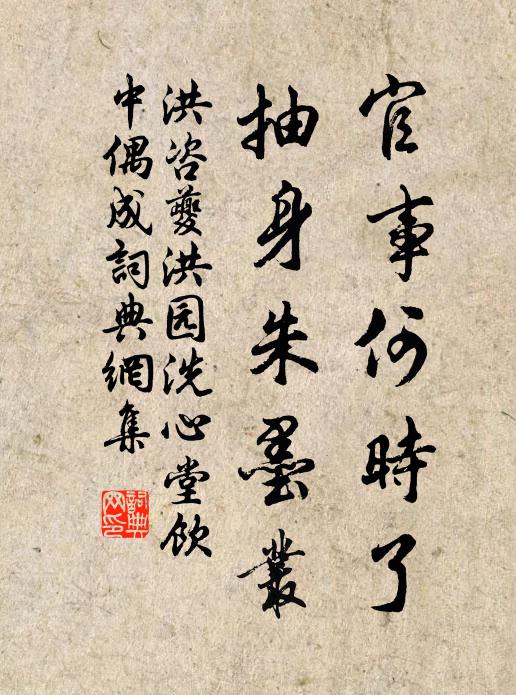 官事何時了
抽身朱墨叢
洪咨夔洪园洗心堂飲
中偶成詞典網集
詞典
网印